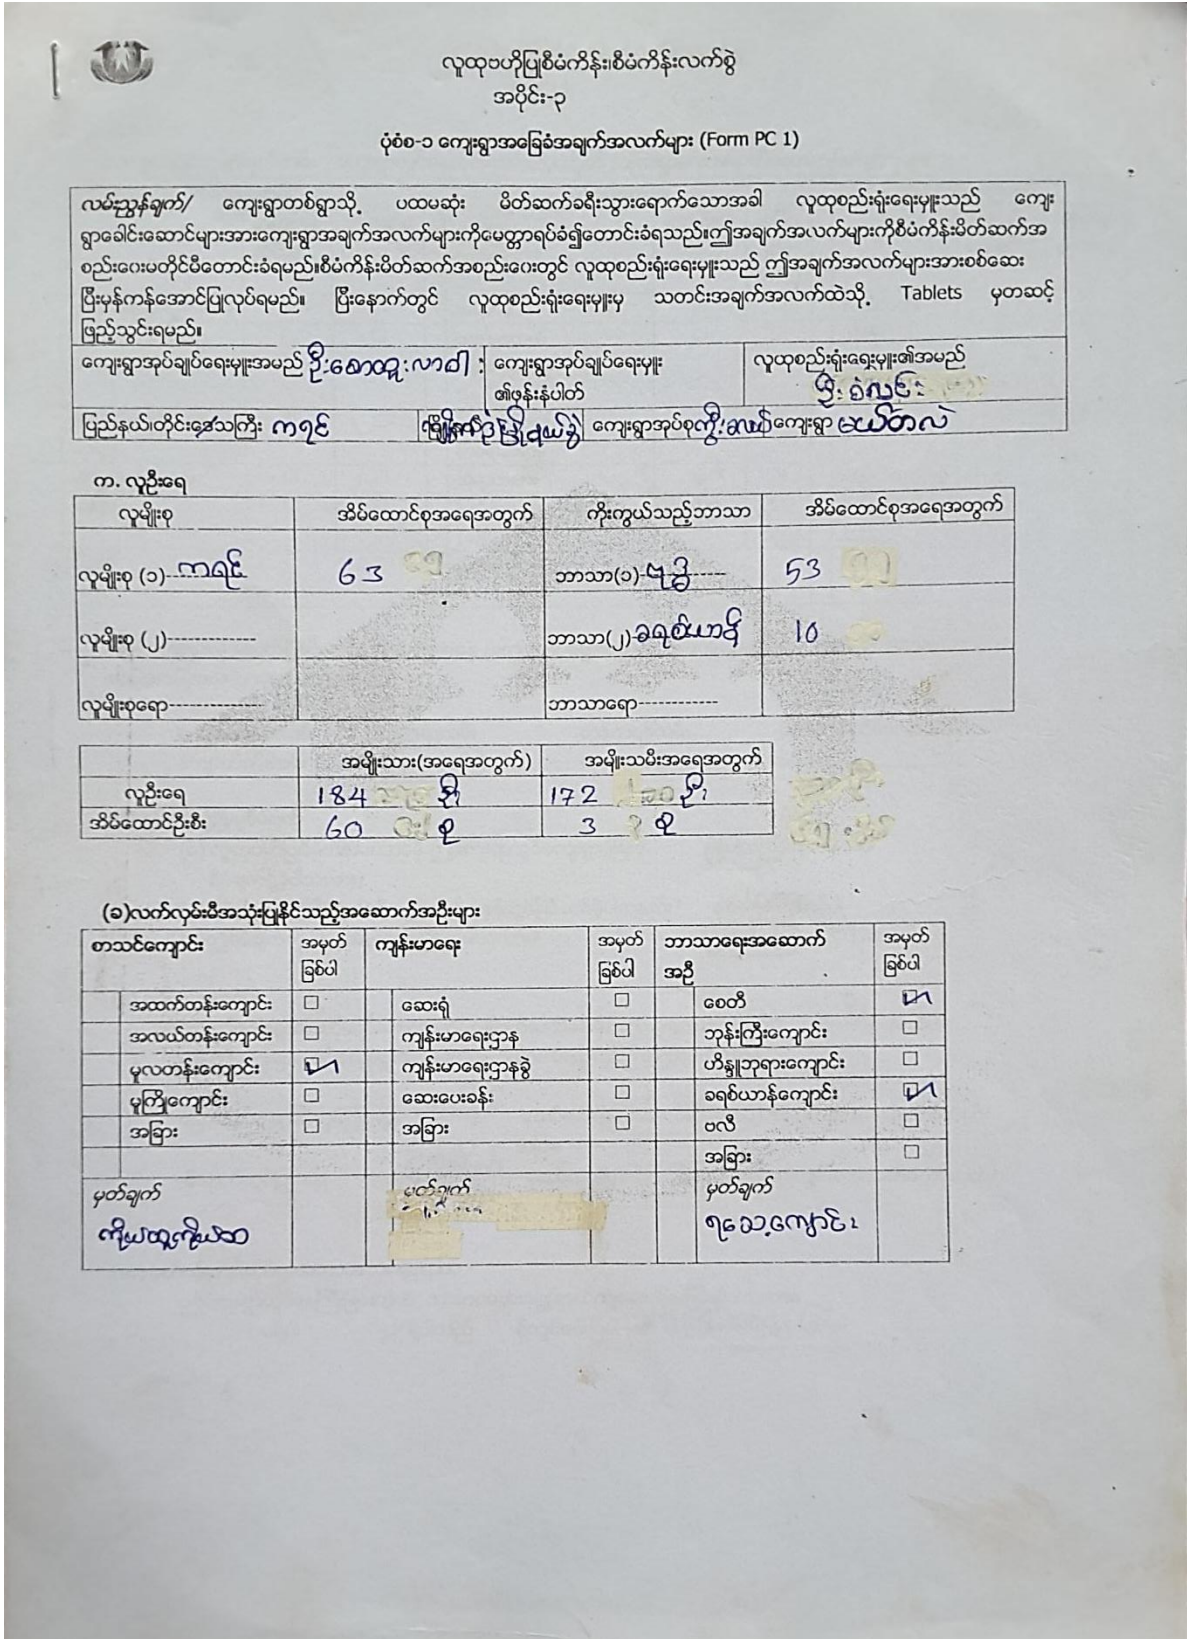 လူထုဗဟိုပြုစီမံကိန်း၊စီမံကိန်းလက်စွဲ
အပိုင်း-၃
ပုံစံစ-၁ ကျေးရွာအခြေခံအချက်အလက်များ (Form PC 1)
လမ်းညွှန်ချက်/ ကျေးရွာတစ်ရွာသို့ ပထမဆုံး မိတ်ဆက်ခရီးသွားရောက်သောအခါ လူထုစည်းရုံးရေးမှူးသည် ကျေး
ရွာခေါင်းဆောင်များအားကျေးရွာအချက်အလက်များကိုမေတ္တာရပ်ခံ၍တောင်းခံရသည်။ဤအချက်အလက်များကိုစီမံကိန်းမိတ်ဆက်အ
စည်းဝေးမတိုင်မီတောင်းခံရမည်။စီမံကိန်းမိတ်ဆက်အစည်းဝေးတွင် လူထုစည်းရုံးရေးမှူးသည် ဤအချက်အလက်များအားစစ်ဆေး
ပြီးမှန်ကန်အောင်ပြုလုပ်ရမည်။ ပြီးနောက်တွင် လူထုစည်းရုံးရေးမှူးမှ သတင်းအချက်အလက်ထဲသို့ Tablets မှတဆင့်
ဖြည့်သွင်းရမည်။
ကျေးရွာအုပ်ချုပ်ရေးမှူးအမည် ဦးစောထူးလာဝါး ကျေးရွာအုပ်ချုပ်ရေးမှူး လူထုစည်းရုံးရေးမှူး၏အမည်
၏ဖုန်းနံပါတ်
ပြည်နယ်၊တိုင်းဒေသကြီး ကရင် ကျေးရွာအုပ်စု ကျေးရွာ မယ်တလဲ
က. လူဦးရေ
လူမျိုးစု အိမ်ထောင်စုအရေအတွက် ကိုးကွယ်သည့်ဘာသာ အိမ်ထောင်စုအရေအတွက်
လူမျိုးစု (၁)------ ကရင် 63 ဘာသာ(၁)- ဗုဒ္ဓ ------ 53
လူမျိုးစု (၂)------------- ဘာသာ(၂)-ခရစ်ယာန် 10
လူမျိုးစုရော-------------- ဘာသာရော------------
အမျိုးသား(အရေအတွက်) အမျိုးသမီးအရေအတွက်
လူဦးရေ 184 ဦး 172 ဦး
အိမ်ထောင်ဦးစီး 60 စု 3 စု
(ခ)လက်လှမ်းမီအသုံးပြုနိုင်သည့်အဆောက်အဦးများ
စာသင်ကျောင်း အမှတ် ကျန်းမာရေး အမှတ် ဘာသာရေးအဆောက် အမှတ်
ခြစ်ပါ ခြစ်ပါ အဦ ခြစ်ပါ
အထက်တန်းကျောင်း ဆေးရုံ စေတီ
အလယ်တန်းကျောင်း ကျန်းမာရေးဌာန ဘုန်းကြီးကျောင်း
မူလတန်းကျောင်း ကျန်းမာရေးဌာနခွဲ ဟိန္ဒူဘုရားကျောင်း
မူကြိုကျောင်း ဆေးပေးခန်း ခရစ်ယာန်ကျောင်း
အခြား အခြား ဗလီ
အခြား
မှတ်ချက် မှတ်ချက် မှတ်ချက်
ကိုယ်ထူကိုယ်ထ ရသေ့ကျောင်း